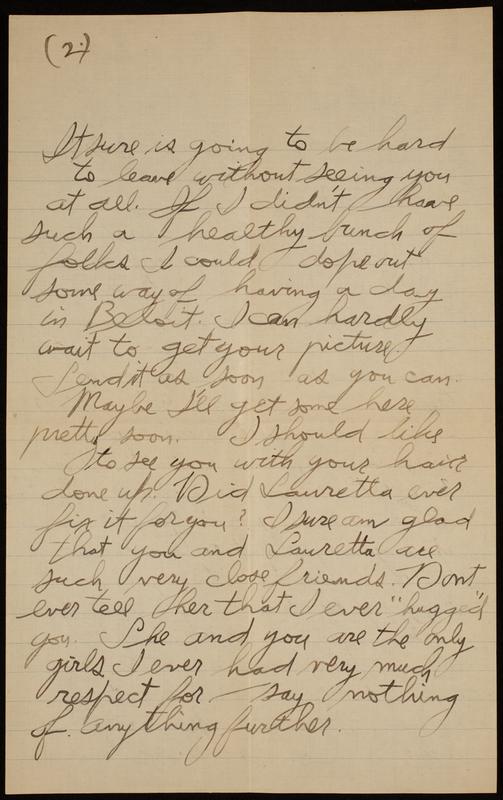 (2.)
It sure is going to be hard
to leave without seeing you
at all. If I didn't have
such a healthy bunch of
folks I could dope out
some way of having a day
in Beloit. I can hardly
wait to get your picture
Send it as soon as you can.
Maybe I'll get some here
pretty soon. I should like
to see you with your hair
done up. Did Lauretta ever
fix it for you? I sure am glad
that you and Lauretta are
such very close friends. Dont
ever tell her that I ever "hugged"
you. She and you are the only
girls I ever had very much
respect for — say nothing
of anything further.